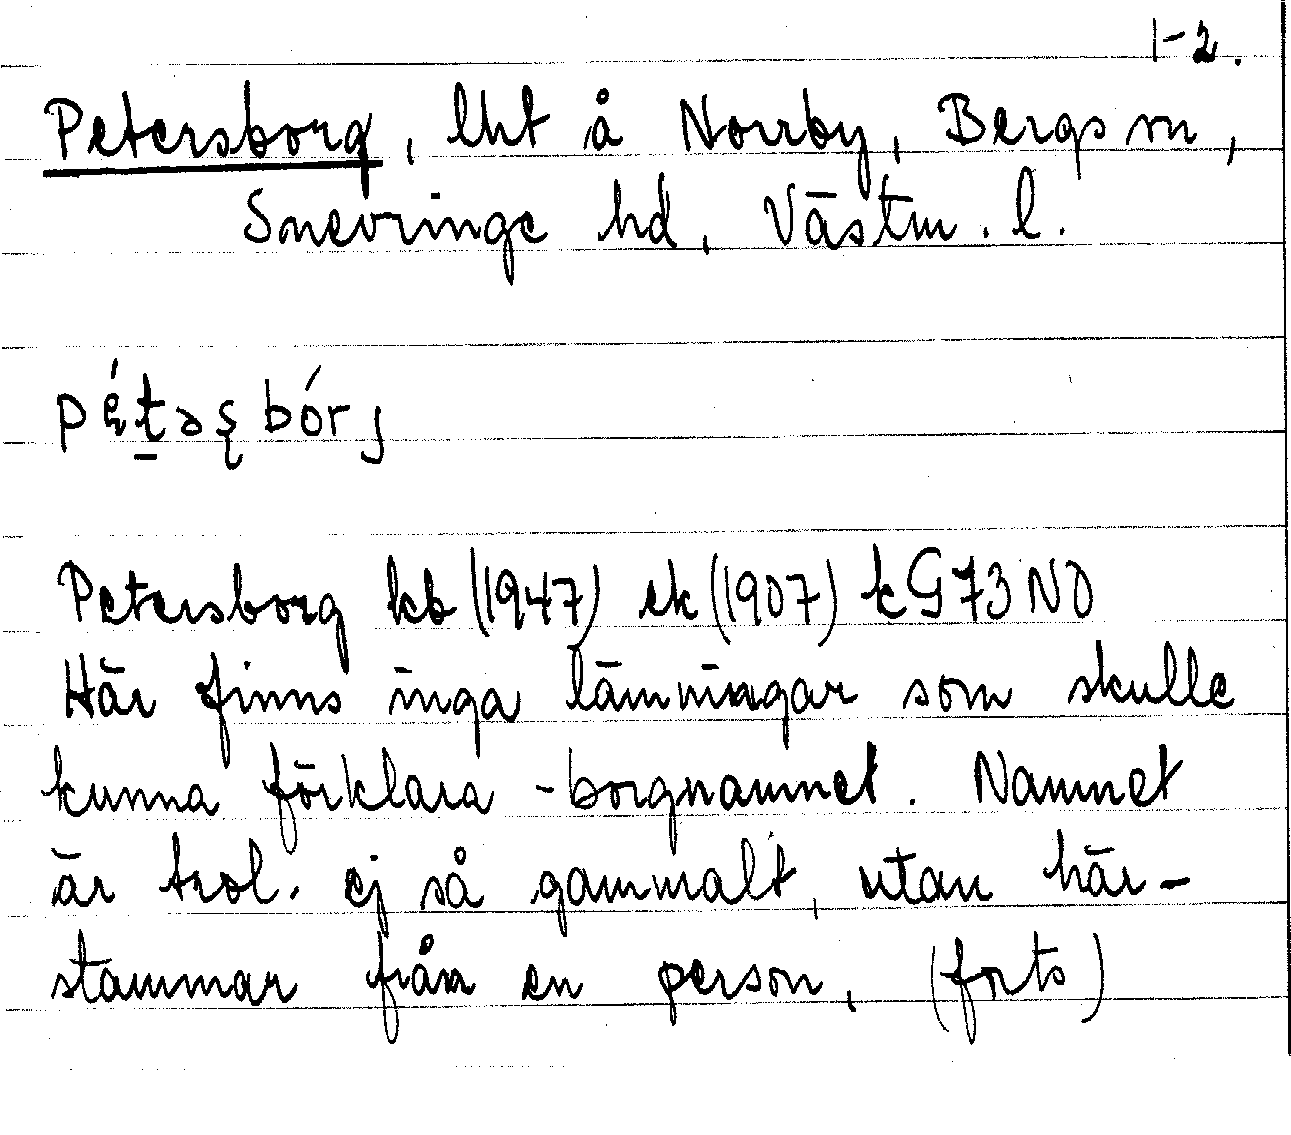 1-2.
Petersborg, lht å Norrby, Bergs sn,
Snevringe hd, Västm. l.
pétəsbórj
Petersborg kb (1947) ek (1907) kG73NO
Här finns inga lämningar som skulle
kunna förklara -borgnamnet. Namnet
är trol. ej så gammalt, utan här-
stammar från en person, (forts)